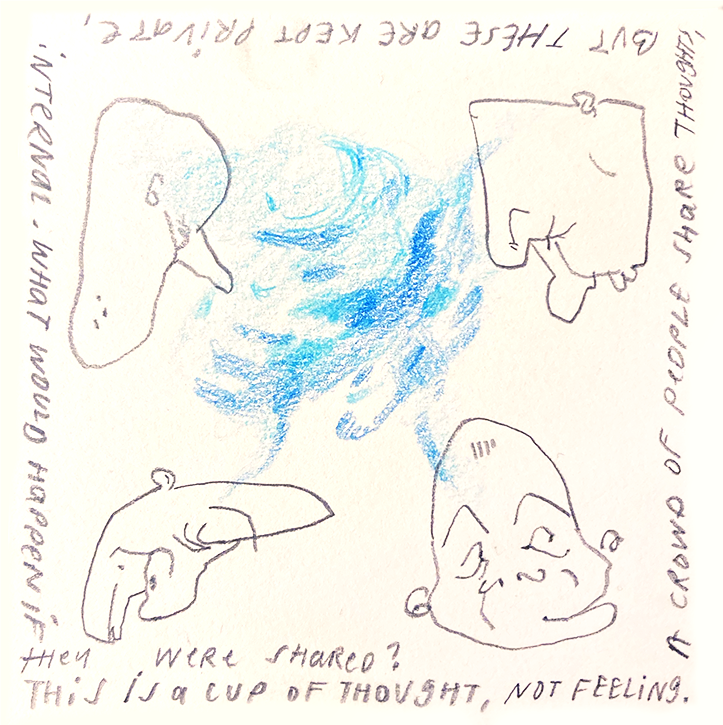 A CROWD OF PEOPLE SHARE THOUGHTS,
BUT THESE ARE KEPT PRIVATE,
INTERNAL. WHAT WOULD HAPPEN IF
THEY WERE SHARED?
THIS IS A CUP OF THOUGHT, NOT FEELING.